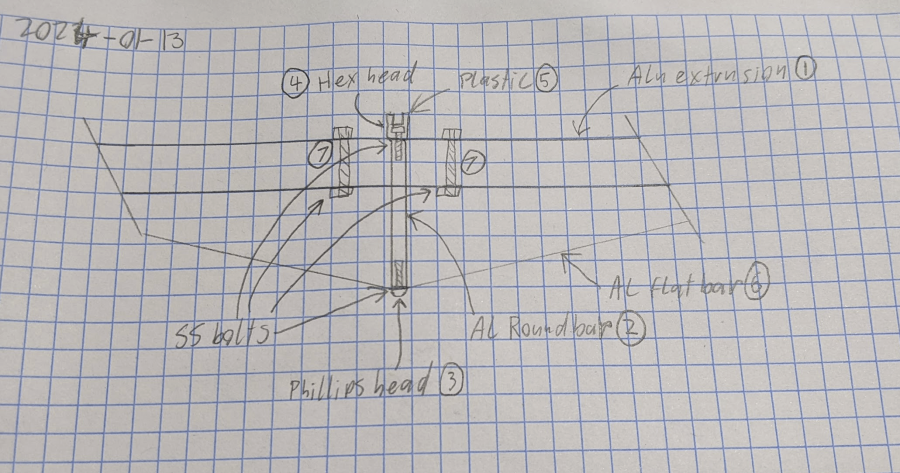 2024-01-13
④ Hex head
Plastic ⑤
Alu extrusion ①
⑦
⑦
AL flat bar ⑥
SS bolts
AL Round bar ②
Phillips head ③